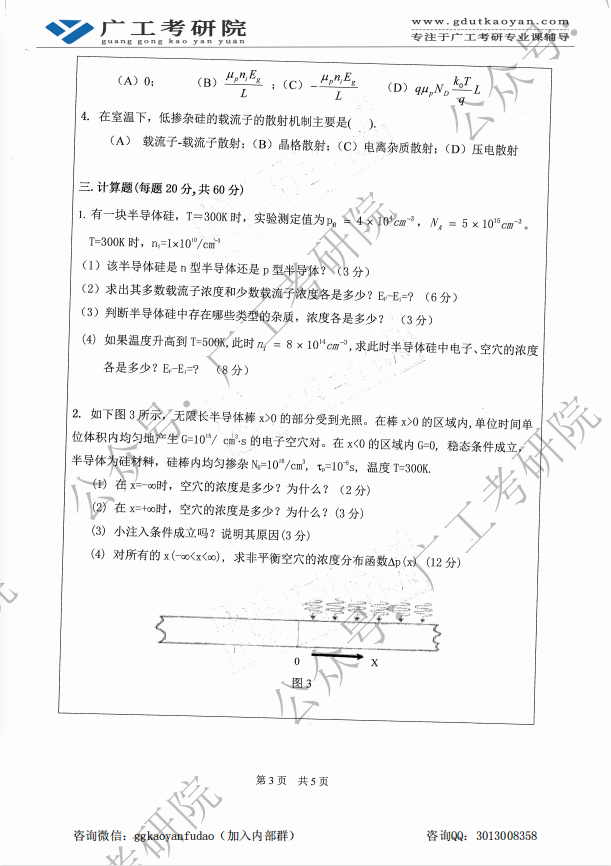 广工考研院
guang gong kao yan yuan
www.gdutkaoyan.com
专注于广工考研专业课辅导
(A) 0; (B) μ_p n_i E_g / L ; (C) − μ_p n_i E_g / L (D) qμ_p N_D (k_0T / q) L
4. 在室温下，低掺杂硅的载流子的散射机制主要是( ).
(A) 载流子-载流子散射；(B) 晶格散射；(C) 电离杂质散射；(D) 压电散射
三. 计算题(每题 20 分, 共 60 分)
1. 有一块半导体硅，T＝300K 时，实验测定值为 p₀ = 4 × 10³cm⁻³，N_A = 5 × 10¹⁵cm⁻³。
T=300K 时，n_i=1×10¹⁰/cm⁻³
(1) 该半导体硅是 n 型半导体还是 p 型半导体？（3 分）
(2) 求出其多数载流子浓度和少数载流子浓度各是多少？E_F-E_i=? （6 分）
(3) 判断半导体硅中存在哪些类型的杂质，浓度各是多少？ （3 分）
(4) 如果温度升高到 T=500K, 此时 n_i = 8 × 10¹⁴cm⁻³, 求此时半导体硅中电子、空穴的浓度
各是多少？E_F-E_i=? （8 分）
2. 如下图 3 所示，无限长半导体棒 x>0 的部分受到光照。在棒 x>0 的区域内, 单位时间单
位体积内均匀地产生 G=10¹⁶/ cm³·s 的电子空穴对。在 x<0 的区域内 G=0, 稳态条件成立，
半导体为硅材料，硅棒内均匀掺杂 N_D=10¹⁶/cm³, τ_p=10⁻⁶s, 温度 T=300K.
(1) 在 x=-∞时，空穴的浓度是多少？为什么？（2 分）
(2) 在 x=+∞时，空穴的浓度是多少？为什么？(3 分)
(3) 小注入条件成立吗？说明其原因(3 分)
(4) 对所有的 x(-∞<x<∞), 求非平衡空穴的浓度分布函数Δp(x) (12 分)
0 X
图 3
第 3 页 共 5 页
咨询微信：ggkaoyanfudao（加入内部群）
咨询QQ：3013008358
公众号：广工考研院
公众号：广工考研院
公众号：